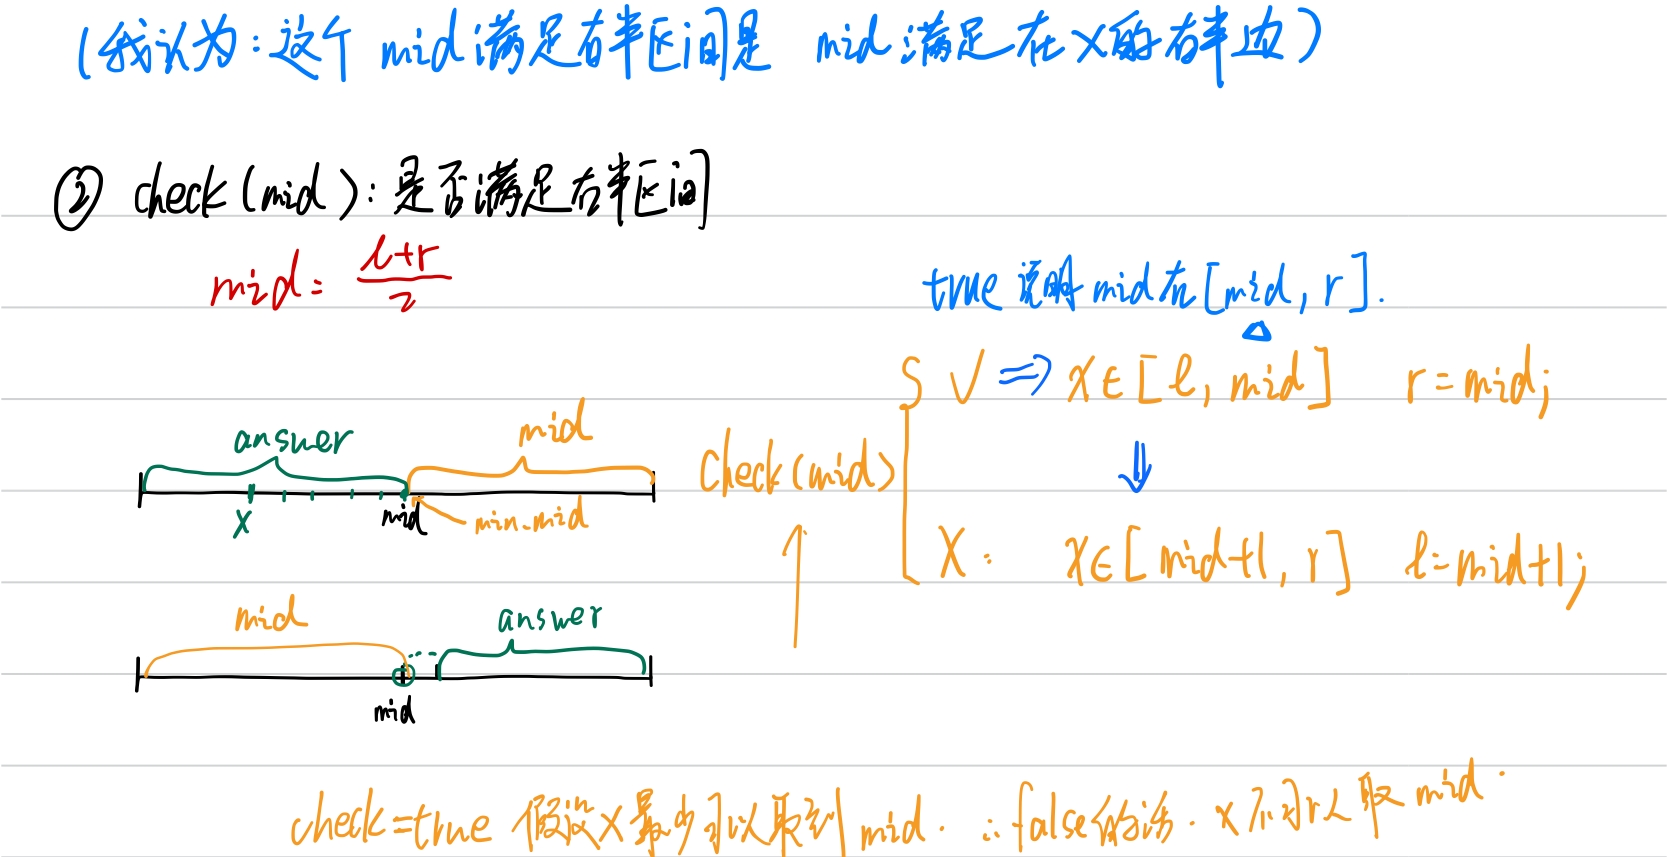 (我认为:这个 mid满足右半区间是 mid满足在x的右半边)
② check(mid):是否满足右半区间
mid = l+r / 2
true 说明 mid在[mid, r].
√ ⇒ x∈[l, mid] r=mid;
answer mid
check(mid)
x mid min-mid
X: x∈[mid+1, r] l=mid+1;
mid answer
mid
check=true 假设x最少可以取到mid. ∴false的话. x不可以取mid.